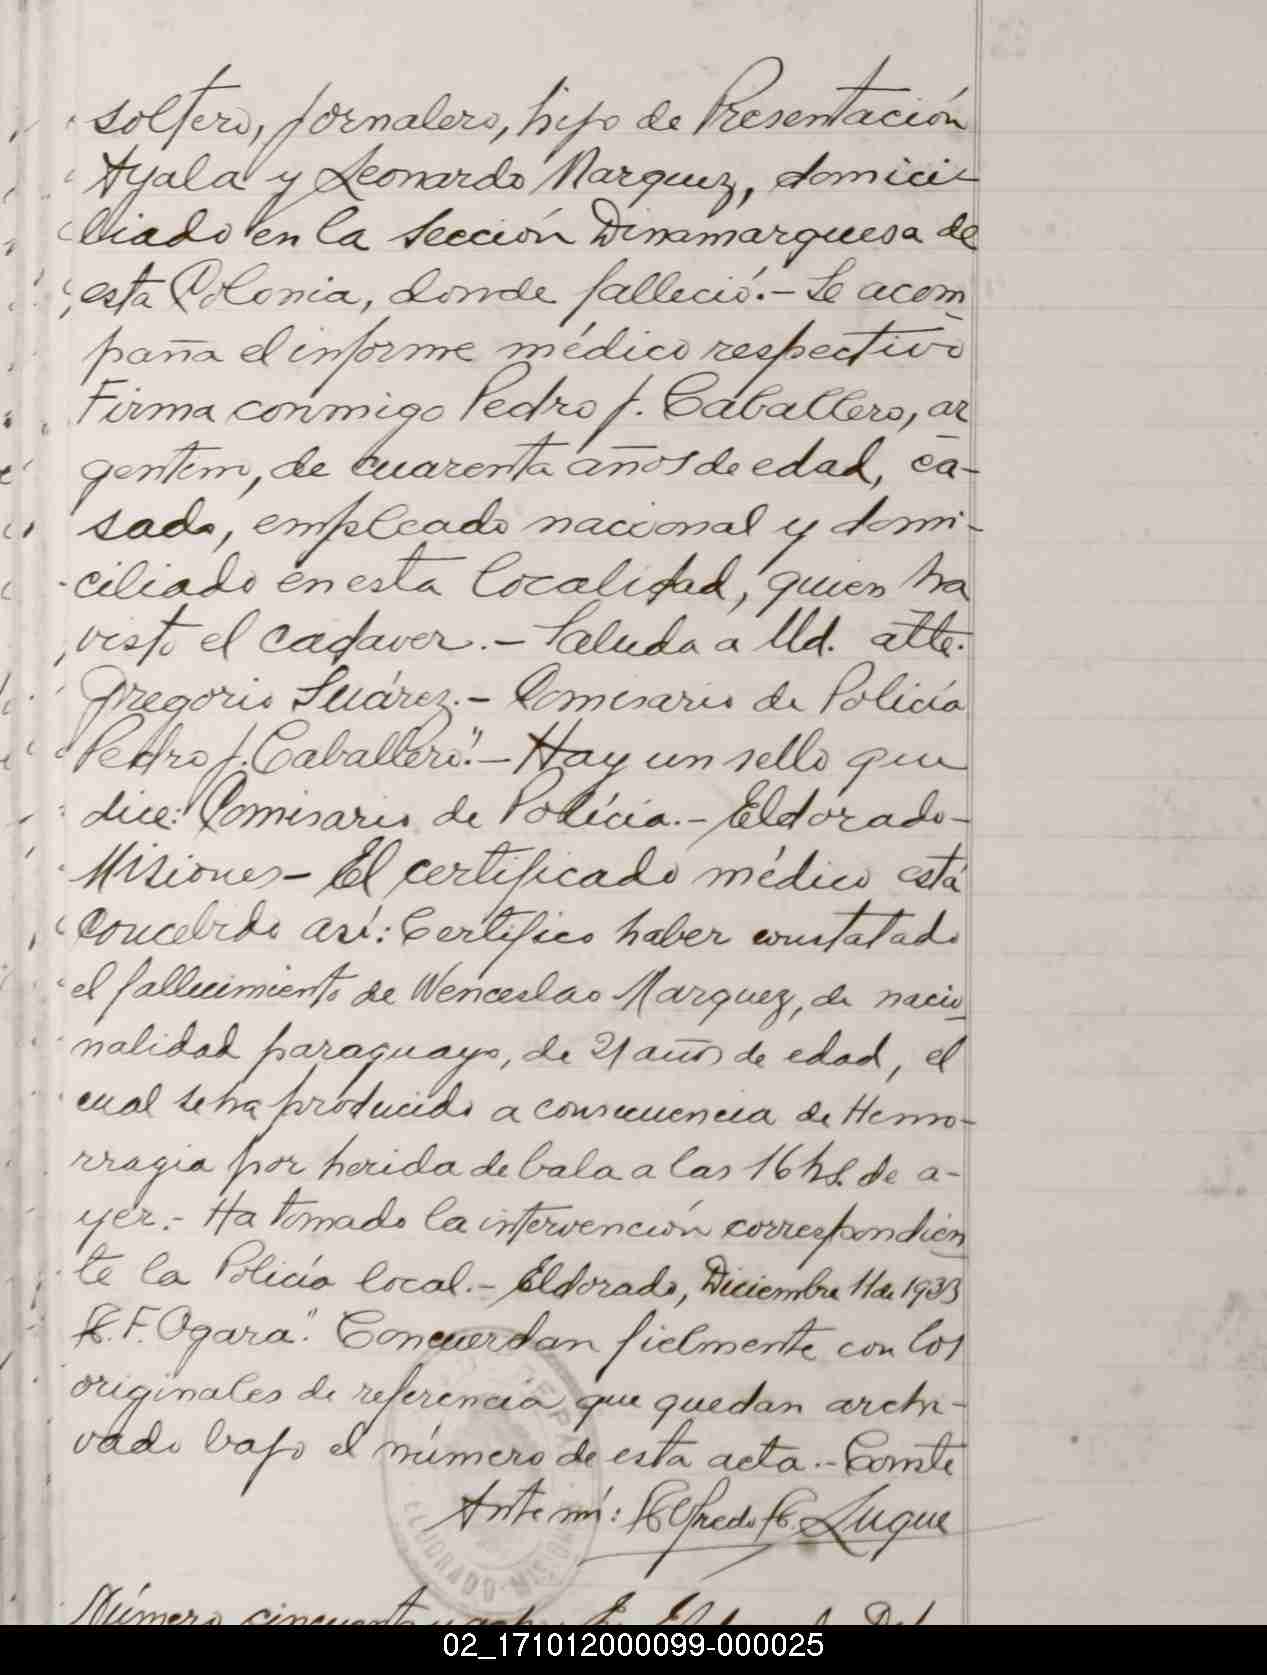 soltero, jornalero, hijo de Presentación
Ayala y Leonardo Marquez, domici-
liado en la Sección Dinamarquesa de
esta Colonia, donde falleció.- Se acom
paña el informe médico respectivo
Firma conmigo Pedro J. Caballero, ar
gentino, de cuarenta años de edad, ca-
sado, empleado nacional y domi-
ciliado en esta localidad, quien ha
visto el cadaver.- Saluda a Ud. atte.
Gregorio Suárez.- Comisario de Policía
Pedro J. Caballero".- Hay un sello que
dice: Comisario de Policía.- Eldorado-
Misiones- El certificado médico está
concebido así: Certifico haber constatado
el fallecimiento de Wenceslao Marquez, de nacio
nalidad paraguayo, de 21 años de edad, el
cual se ha producido a consecuencia de Hemo-
rragia por herida de bala a las 16 hs. de a-
yer.- Ha tomado la intervención correspondien
te la Policía local.- Eldorado, Diciembre 11 de 1933
A. F. Ogara". Concuerdan fielmente con los
originales de referencia que quedan archi-
vado bajo el número de esta acta.- Conste
Ante mí: Alfredo A. Luque
ELDORADO - MISIONES
Número cincuenta y ocho En Eldorado
02_171012000099-000025